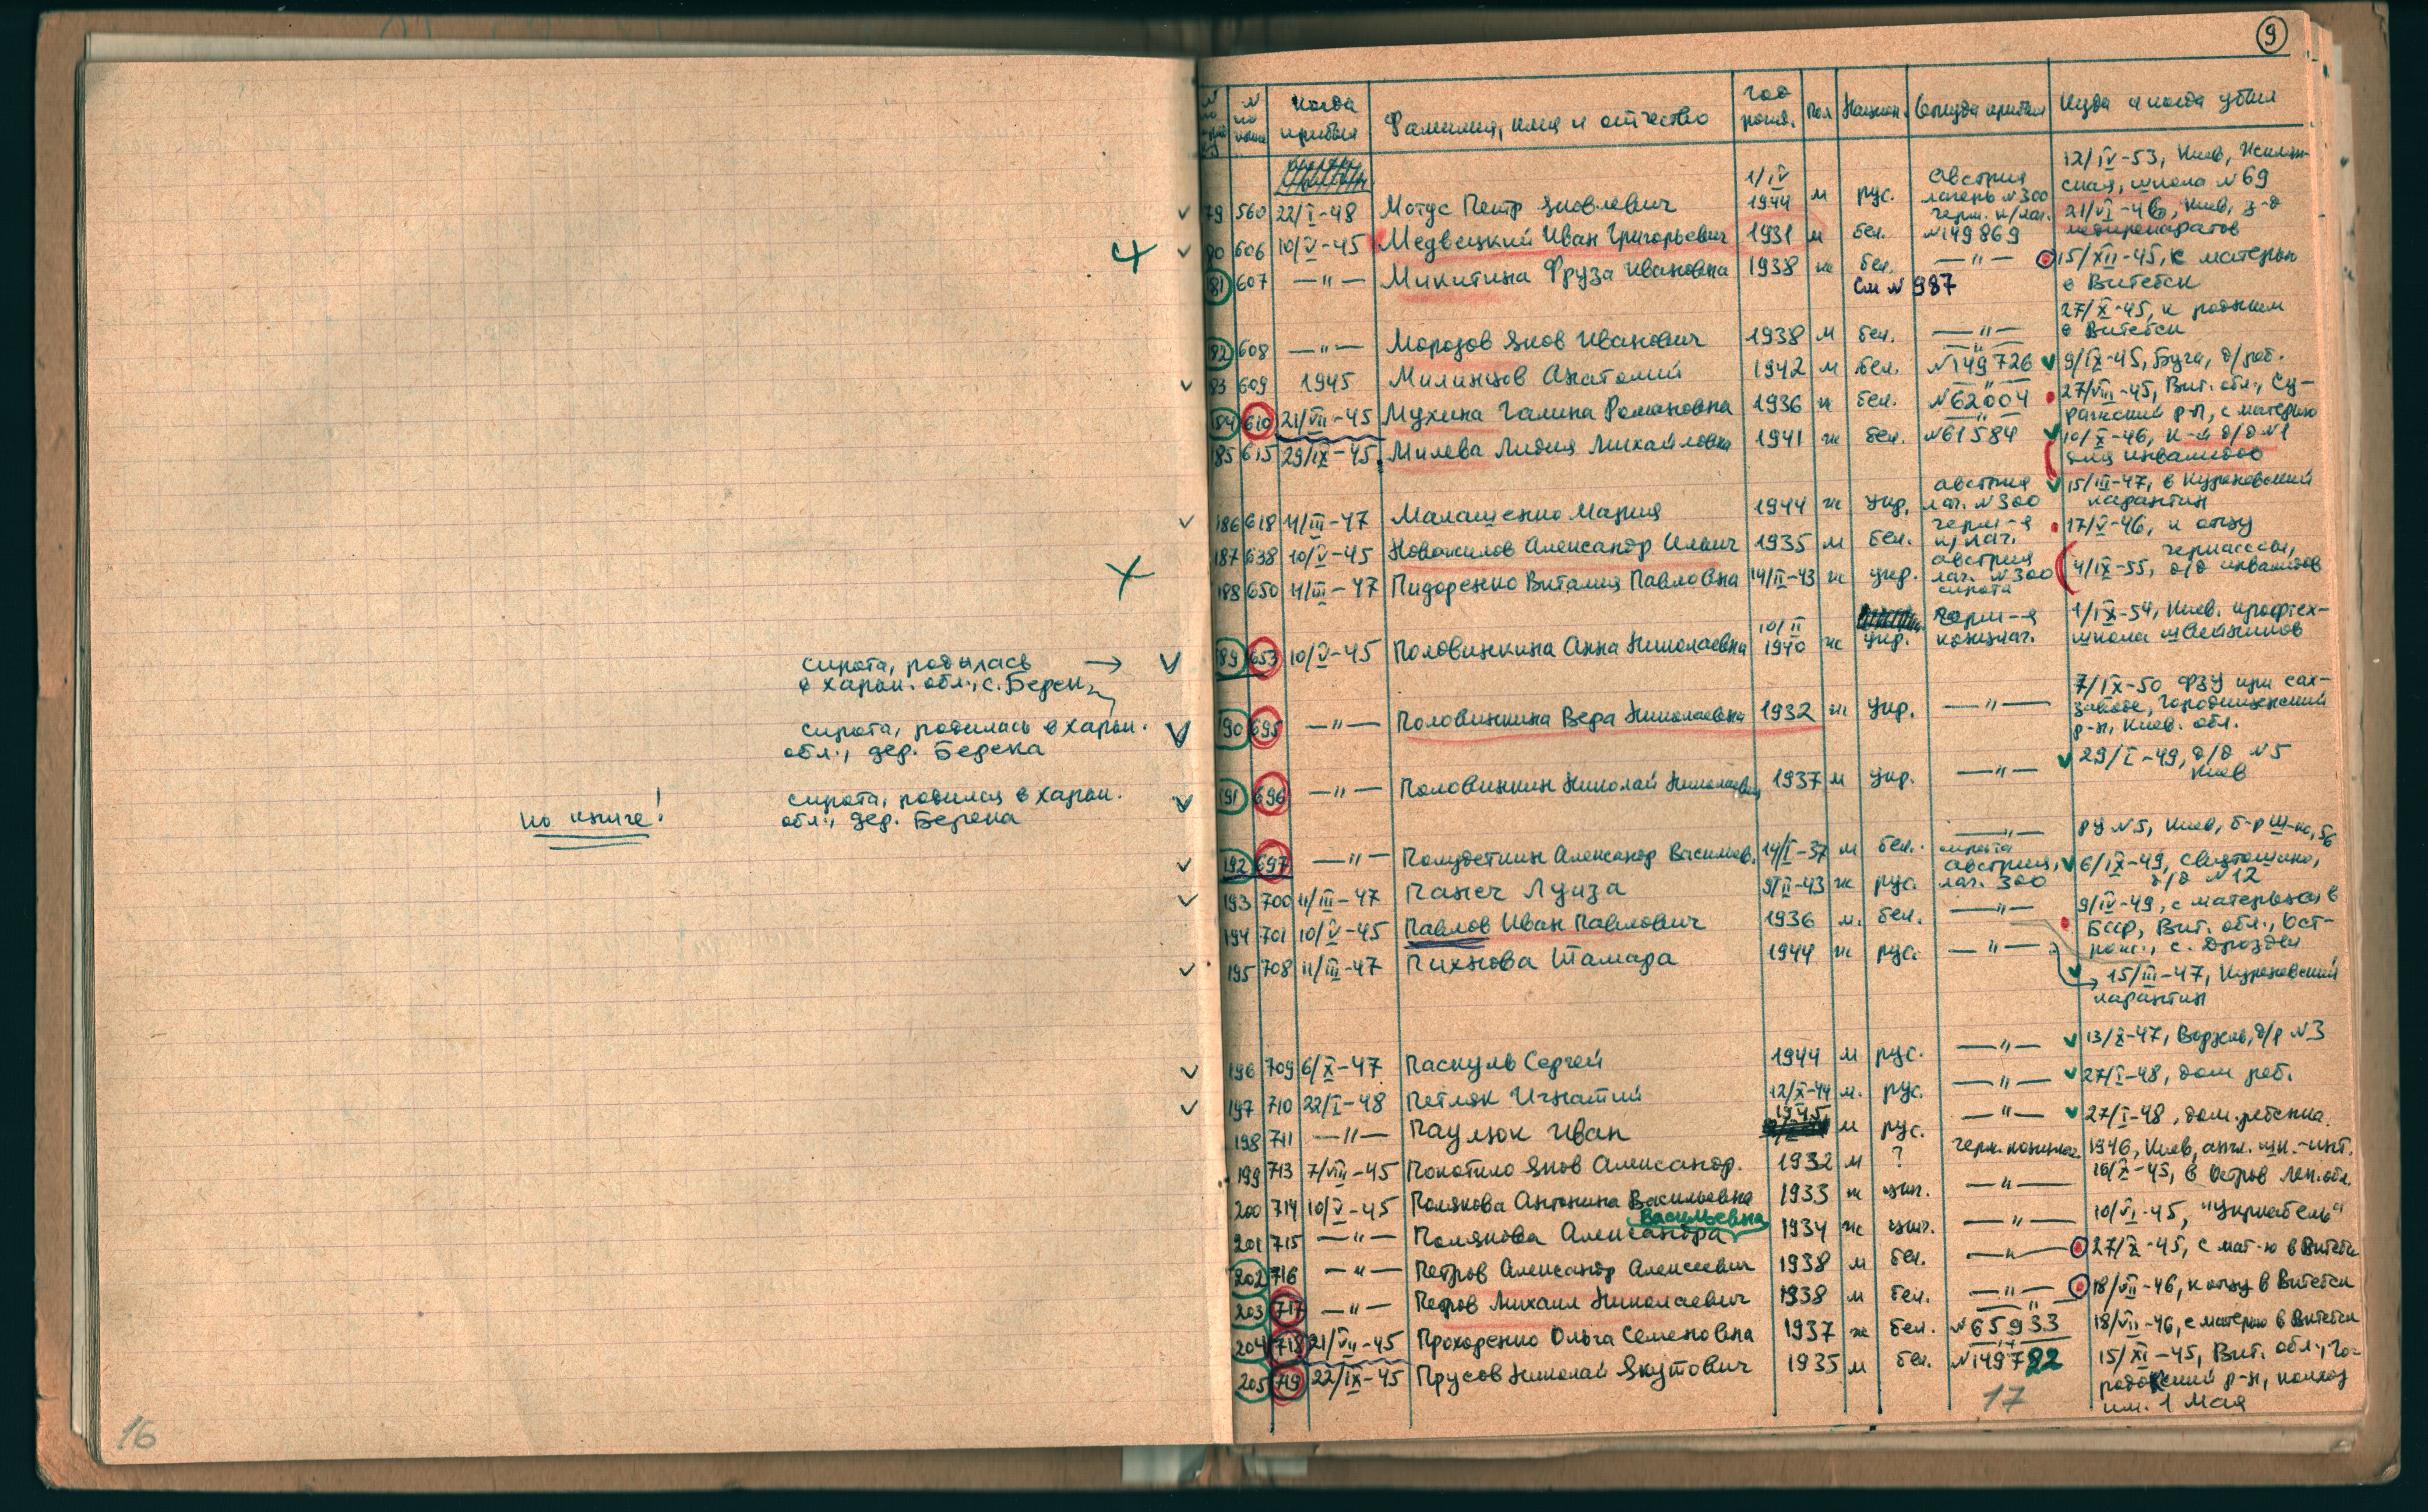 сирота, родилась →
в Харьк. обл., с. Берек
сирота, родилась в Харьк.
обл., дер. Берека
сирота, родился в Харьк.
обл., дер. Берека
по книге!
16
9
Когда прибыл | Фамилия, имя и отчество | Год рожд. | Пол | Национ. | Откуда прибыл | Куда и когда убыл
79 560 22/I-48 Мотус Петр Яковлевич 1/IV 1944 м рус. Австрия лагерь №300 12/IV-53, Киев, школа №69
80 606 10/V-45 Медвецкий Иван Григорьевич 1931 м бел. герм. к/лаг. №149869 21/VI-46, Киев, з-д медпрепаратов
181 607 —"— Микитина Фруза Ивановна 1938 ж бел. —"— 15/XII-45, к матери в Витебск
См №987
182 608 —"— Морозов Яков Иванович 1938 м бел. —"— 27/X-45, к родным в Витебск
83 609 1945 Милинцов Анатолий 1942 м бел. —"— №149726 9/IX-45, Буча, д/реб.
184 610 21/VII-45 Мухина Галина Романовна 1936 ж бел. —"— №62004 27/VIII-45, Вит. обл., Суражский р-н, с матерью
185 615 29/IX-45 Милева Лидия Михайловна 1941 ж бел. —"— №61584 10/X-46, К-й д/д №1 для инвалидов
186 618 11/III-47 Малашенко Мария 1944 ж укр. Австрия лаг. №300 15/III-47, в Куреневский карантин
187 638 10/V-45 Новожилов Александр Ильич 1935 м бел. Герм-я к/лаг. 17/V-46, к отцу
188 650 11/III-47 Пидоренко Виталия Павловна 14/II-43 ж укр. Австрия лаг. №300 сирота 4/IX-55, Черкассы, д/д инвалидов
189 653 10/V-45 Половинкина Анна Николаевна 10/II 1940 ж укр. Герм-я концлаг. 1/IX-54, Киев. профтехшкола швейников
190 695 —"— Половинкина Вера Николаевна 1932 ж укр. —"— 7/IX-50 ФЗУ при сахзаводе, Городищенский р-н, Киев. обл.
191 696 —"— Половинкин Николай Николаевич 1937 м укр. —"— 29/I-49, д/д №5 Киев
192 697 —"— Полудеткин Александр Васильев. 14/I-37 м бел. —"— сирота РУ №5, Киев, б-р Ш-ко, 56
193 700 11/III-47 Панеч Луиза 9/II-43 ж рус. Австрия, лаг. 300 6/IX-49, Святошино, д/д №12
194 701 10/V-45 Павлов Иван Павлович 1936 м. бел. —"— 9/IV-49, с матерью в БССР, Вит. обл., с. Дрозды
195 708 11/III-47 Пихнова Тамара 1944 ж рус. —"— → 15/III-47, Куреневский карантин
196 709 6/X-47 Паскуль Сергей 1944 м рус. —"— 13/X-47, Ворзель, д/р №3
197 710 22/I-48 Петляк Игнатий 12/X-44 м. рус. —"— 27/I-48, дом реб.
198 711 —"— Паулюк Иван 1945 м рус. —"— 27/I-48, дом. ребенка.
199 713 7/VIII-45 Покотило Яков Александр. 1932 м ? Герм. концлаг. 1946, Киев, шк.-инт.
200 714 10/V-45 Полякова Антонина Васильевна 1933 ж цыг. —"— 16/X-45, в Остров Лен. обл.
201 715 —"— Полякова Александра Васильевна 1934 ж цыг. —"— 10/VI-45, "Укркабель"
202 716 —"— Петров Александр Алексеевич 1938 м бел. —"— 27/X-45, с мат-ю в Витебск
203 717 —"— Петров Михаил Николаевич 1938 м бел. —"— 18/VII-46, к отцу в Витебск
204 718 21/VII-45 Прохоренко Ольга Семеновна 1937 ж бел. —"— №65933 18/VII-46, с матерью в Витебск
205 719 22/IX-45 Прусов Николай Якутович 1935 м бел. —"— №149782 15/XI-45, Вит. обл., Городокский р-н, колхоз им. 1 Мая
17